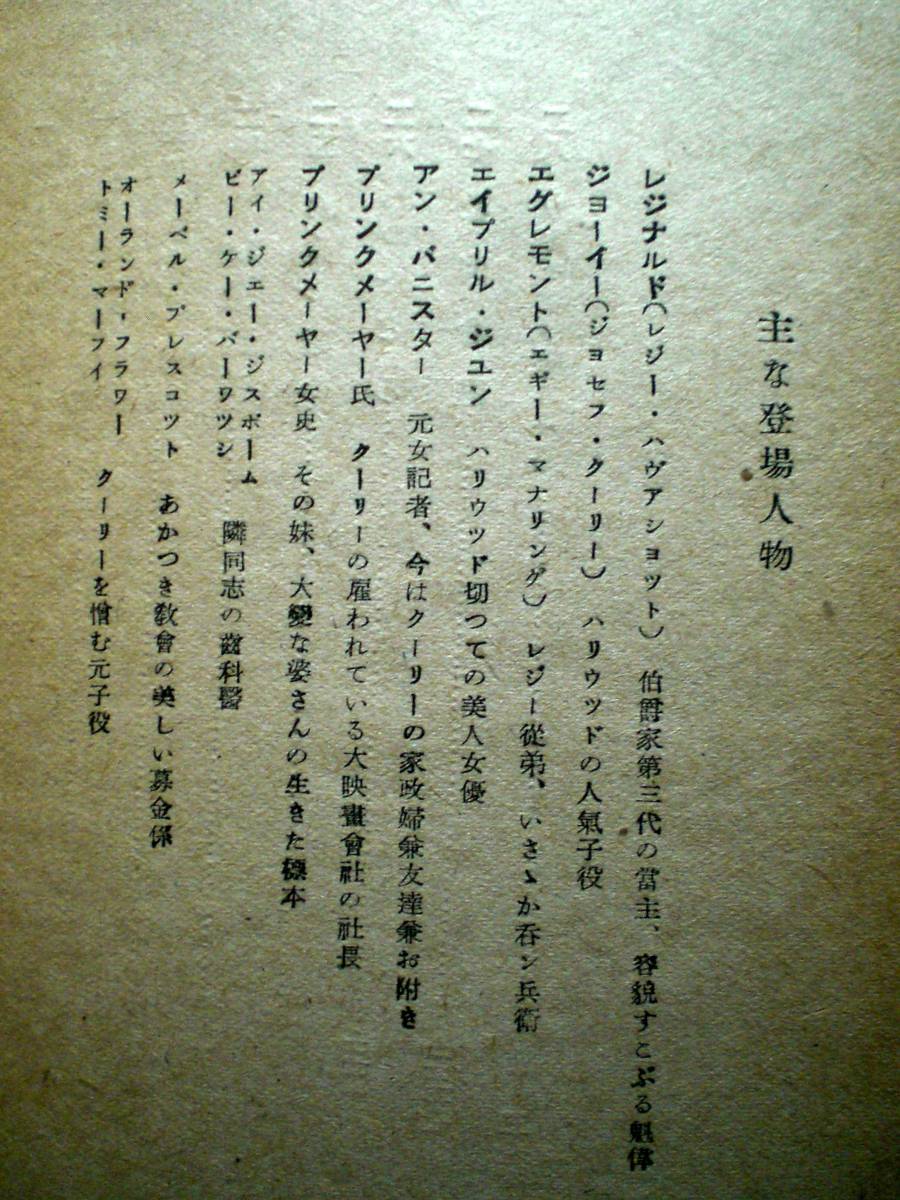 主な登場人物
レジナルド(レジー・ハヴアシヨツト) 伯爵家第三代の當主、容貌すこぶる魁偉
ジヨーイー(ジヨセフ・クーリー) ハリウツドの人氣子役
エグレモント(エギー・マナリング) レジー従弟、いさゝか呑ン兵衛
エイプリル・ジユン ハリウツド切つての美人女優
アン・バニスター 元女記者、今はクーリーの家政婦兼友達兼お附き
ブリンクメーヤー氏 クーリーの雇われている大映畫會社の社長
ブリンクメーヤー女史 その妹、大變な婆さんの生きた標本
アイ・ジエー・ジスボーム
ビー・ケー・バーワツシ 隣同志の齒科醫
メーベル・プレスコツト あかつき敎會の美しい募金係
オーランド・フラワー
トミー・マーフイ クーリーを憎む元子役